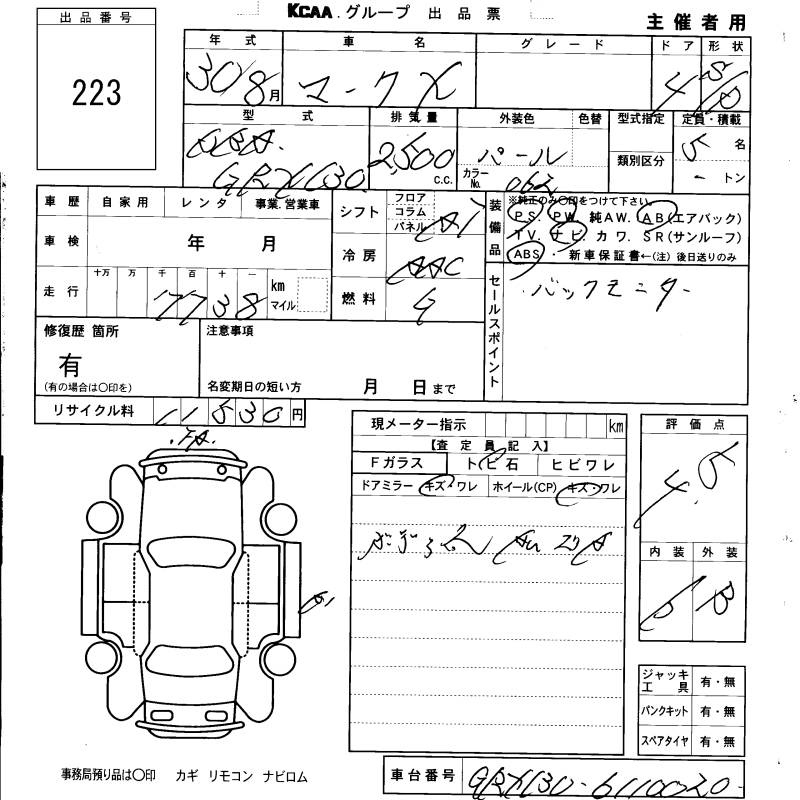 KCAA グループ 出品票
主催者用
出品番号
223
年式 車名 グレード ドア 形状
30/8月 マークX 4
型式 排気量 外装色 色替 型式指定 定員・積載
DBA- 2,500 c.c. パール 類別区分 5名
GRX130 カラーNo. 062 - トン
車歴 自家用 レンタ 事業.営業車
車検 年 月
走行 十万 万 千 百 十 一 km マイル
17738
シフト フロア コラム パネル AT
冷房 AAC
燃料 G
装備品 ※純正のみ〇印をつけて下さい。
PS. PW. 純AW. AB(エアバック)
TV. ナビ. カワ. SR(サンルーフ)
ABS ・ 新車保証書←(注) 後日送りのみ
セールスポイント バックモニター
修復歴 箇所
有
(有の場合は〇印を)
注意事項
名変期日の短い方 月 日まで
リサイクル料 11830円
現メーター指示 km
【査定員記入】
Fガラス トビ石 ヒビワレ
ドアミラー キズ・ワレ ホイール(CP) キズ・ワレ
評価点
4.5
内装 外装
B B
ジャッキ工具 有・無
パンクキット 有・無
スペアタイヤ 有・無
事務局預り品は〇印 カギ リモコン ナビロム
車台番号 GRX130-6110020-